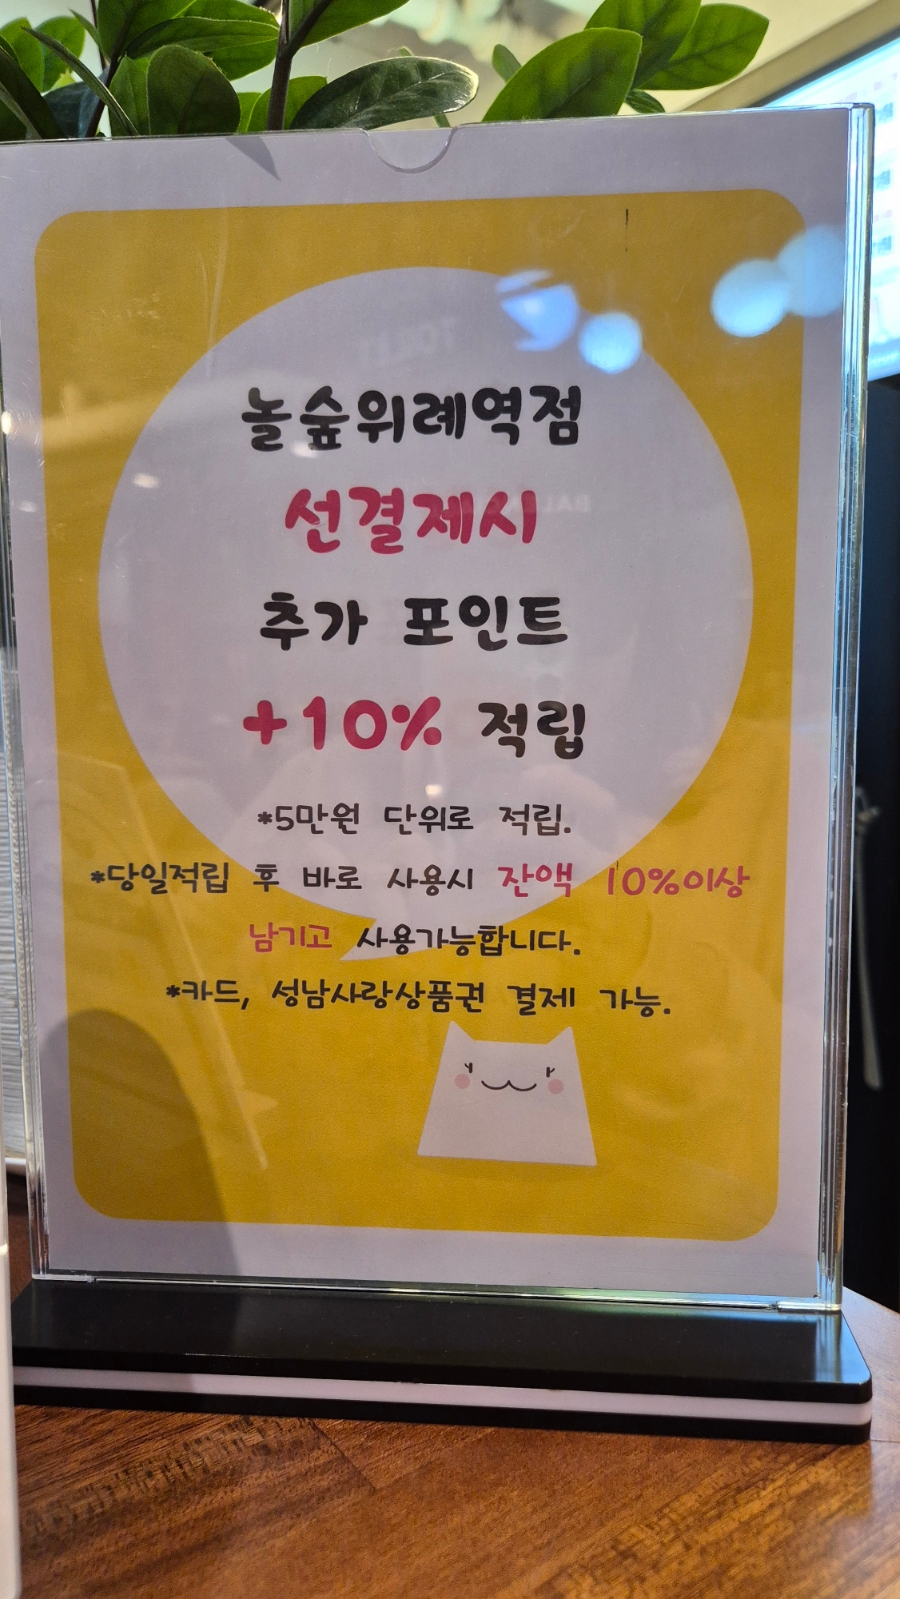 놀숲위례역점
선결제시
추가 포인트
+10% 적립
*5만원 단위로 적립.
*당일적립 후 바로 사용시 잔액 10%이상
남기고 사용가능합니다.
*카드, 성남사랑상품권 결제 가능.